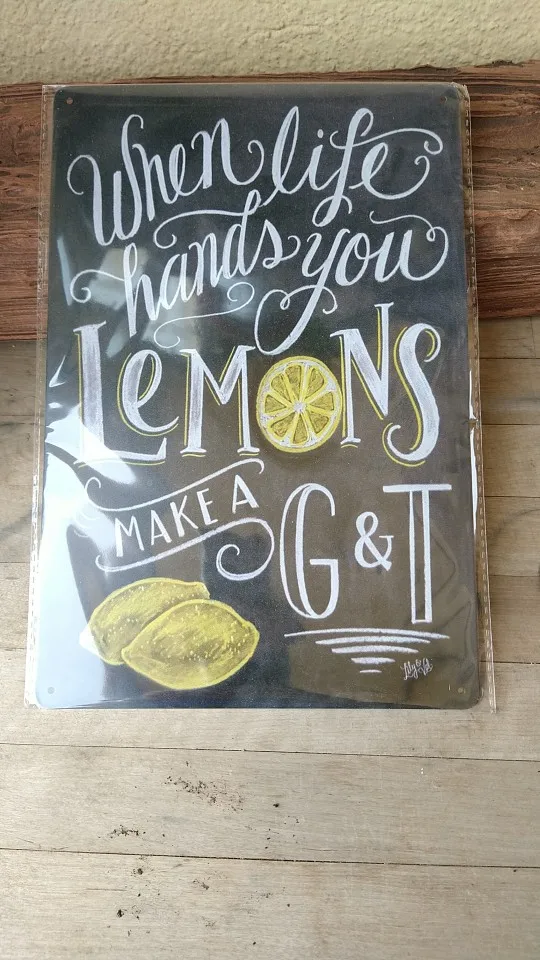 When life
hands you
LeMONS
MAKE A
G & T
Lily & Val